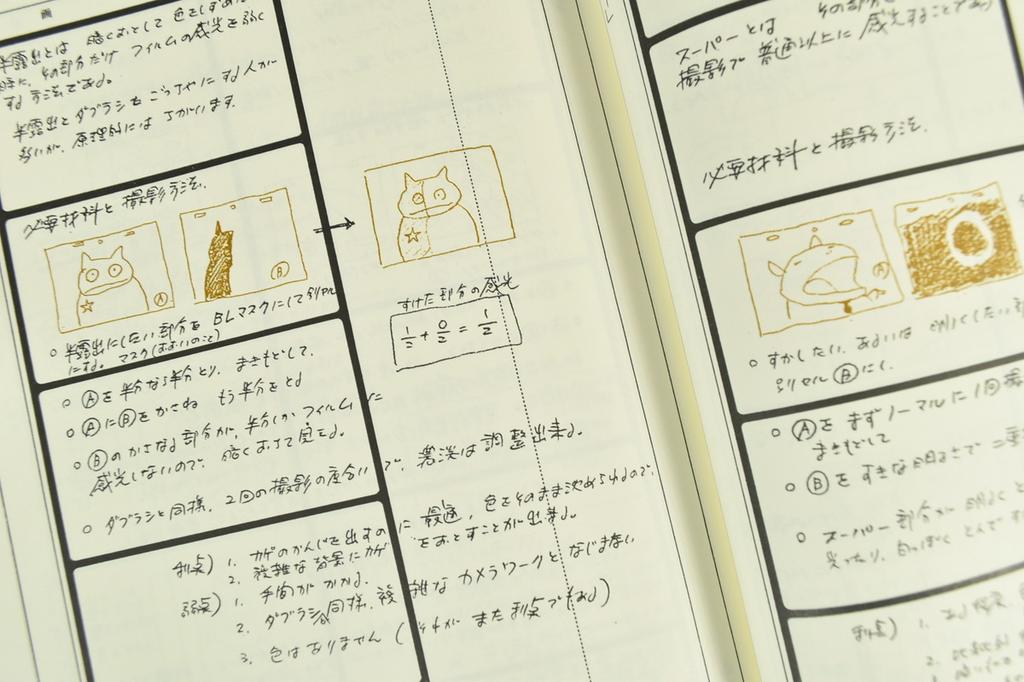 画
半露出とは 暗くおとして 色をしずめ
その部分だけ フィルムの感光を弱く
する方法である。
半露出と ダブラシを ごっちゃに する人が
多いが、原理的には ちがいます。
必要材料と 撮影方法。
A
B
半露出にしたい部分を BLマスクにして別セル
にする。 マスク(おおいのこと)
すけた部分の感光
1/2 + 0/2 = 1/2
○ Ⓐを半分なら半分とり、まきもどして、
○ ⒶにⒷをかさね もう半分をとる
○ Ⓑのかさなる部分が、半分しかフィルムに
感光しないので、暗くおちて見える。
○ ダブラシと同様、2回の撮影の度合いで、濃淡は調整出来る。
利点) 1. カゲのかんじを出すのに最適、色をそのまま沈められるので、
2. 複雑な背景にカゲをおとすことが出来る。
弱点) 1. 手間がかかる。
2. ダブラシ同様、複雑なカメラワークとなじまない
3. 色はありません (それがまた利点でもある)
スーパーとは その部分を
撮影で 普通以上に 感光することであり
必要材料と撮影方法。
A
○ すかしたい、あるいは 明るくしたい
別セルⒷに。
○ Ⓐをまずノーマルに1回撮
まきもどして
○ Ⓑをすきな明るさで二重
○ スーパー部分が明るくと
光ったり、白っぽくとんで
利点) 1.
2.